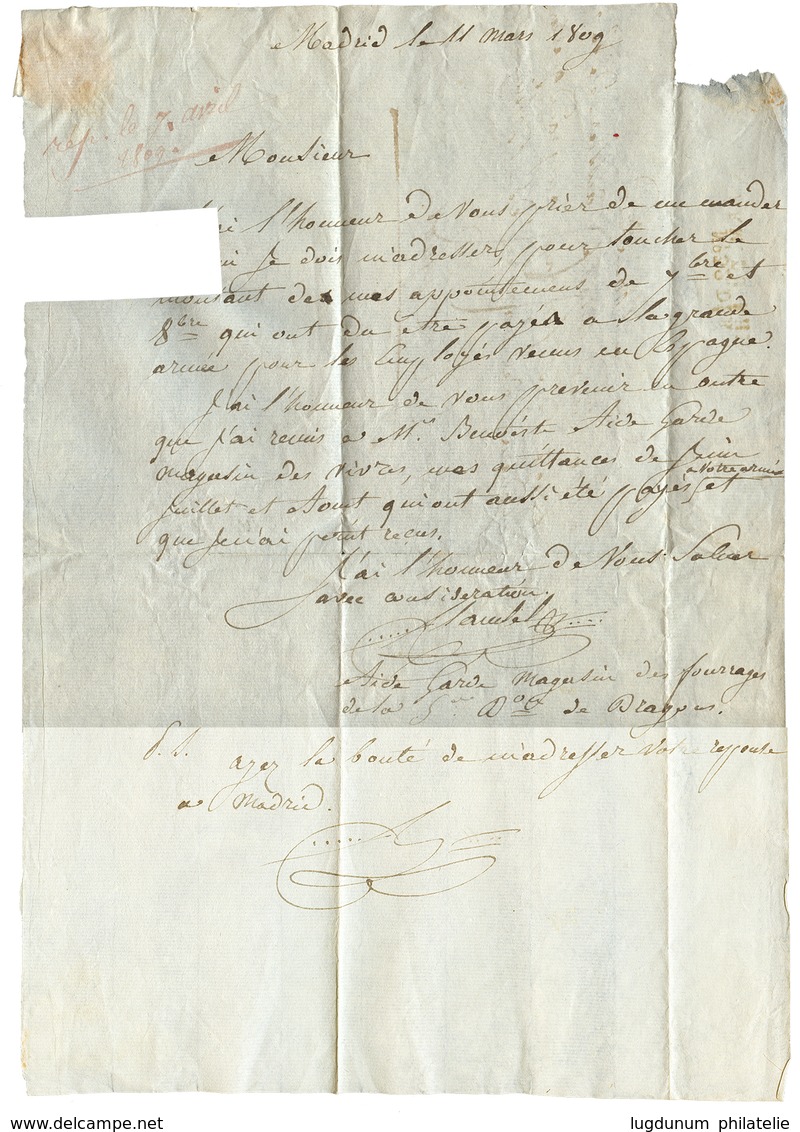 Madrid le 11 mars 1809
rep. le 7. avril
1809.
Monsieur
l'honneur de Vous prier de me mander
Je dois m'adresser, pour toucher le
montant de mes appointement de 7bre et
8bre qui ont du etre payés a la grande
armée pour les Employés venus en Espagne.
J'ai l'honneur de vous prevenir en outre
que J'ai remis a Mr. Aide Garde
magasin des vivres, mes quittances de Juin
a votre armée
Juillet et Aout qui ont aussi été payés et
que Je n'ai point recus.
J'ai l'honneur de Vous Saluer
avec consideration.
Aide Garde magasin des fourrages
de la Don de Dragons.
P. S. ayez la bonté de m'adresser votre reponse
a Madrid.
www.delcampe.net
lugdunum philatelie